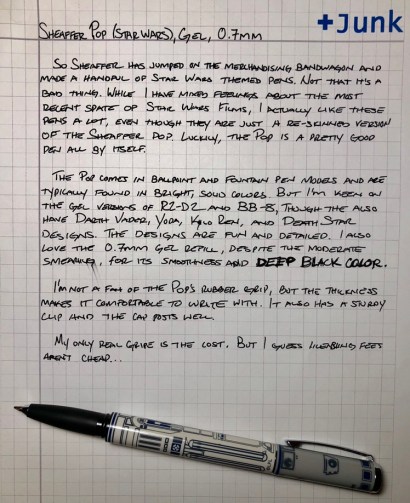 +Junk
Sheaffer Pop (Star Wars), Gel, 0.7mm
So Sheaffer has jumped on the merchandising bandwagon and
made a handful of Star Wars themed pens. Not that it's a
bad thing. While I have mixed feelings about the most
recent spate of Star Wars films, I actually like these
pens a lot, even though they are just a re-skinned version
of the Sheaffer Pop. Luckily, the Pop is a pretty good
pen all by itself.
The Pop comes in ballpoint and fountain pen models and are
typically found in bright, solid colors. But I'm keen on
the gel versions of R2-D2 and BB-8, though the also
have Darth Vader, Yoda, Kylo Ren, and Death Star
designs. The designs are fun and detailed. I also
love the 0.7mm gel refill, despite the moderate
smearing, for its smoothness and deep black color.
I'm not a fan of the Pop's rubber grip, but the thickness
makes it comfortable to write with. It also has a sturdy
clip and the cap posts well.
My only real gripe is the cost. But I guess licensing fees
aren't cheap...